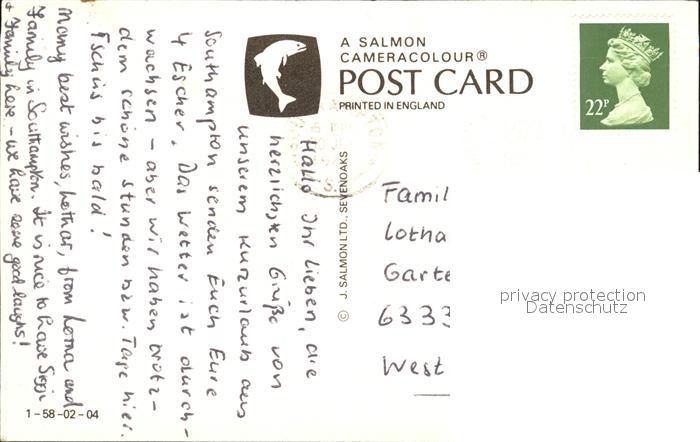 A SALMON
CAMERACOLOUR®
POST CARD
PRINTED IN ENGLAND
22P
© J. SALMON LTD., SEVENOAKS
Hallo Ihr Lieben, die
herzlichsten Grüße von
unserem Kurzurlaub aus
Southampton senden Euch Eure
4 Escher. Das Wetter ist durch-
wachsen - aber wir haben trotz-
dem schöne Stunden bzw. Tage hier.
Tschüs bis bald!
Many best wishes, Lothar, from Lorna and
Family in Southampton. It is nice to have Siggi
+ Family here - we have some good laughs!
Famil
Lotha
Garte
6333
West
privacy protection
Datenschutz
1-58-02-04